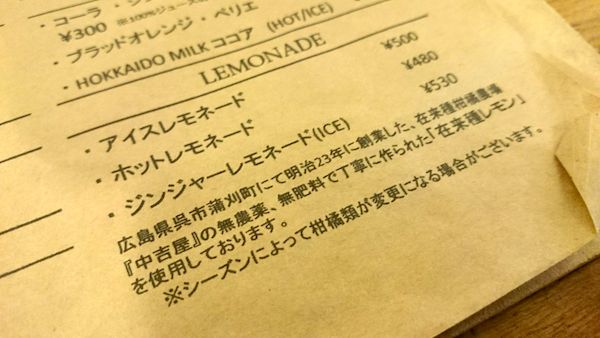 ・コーラ・ジ
¥300 ※100%ジュース
・ブラッドオレンジ・ペリエ
・HOKKAIDO MILK ココア (HOT/ICE)
LEMONADE
・アイスレモネード ¥500
・ホットレモネード ¥480
・ジンジャーレモネード(ICE) ¥530
広島県呉市蒲刈町にて明治23年に創業した、在来種柑橘農場
『中吉屋』の無農薬、無肥料で丁寧に作られた「在来種レモン」
を使用しております。
※シーズンによって柑橘類が変更になる場合がございます。